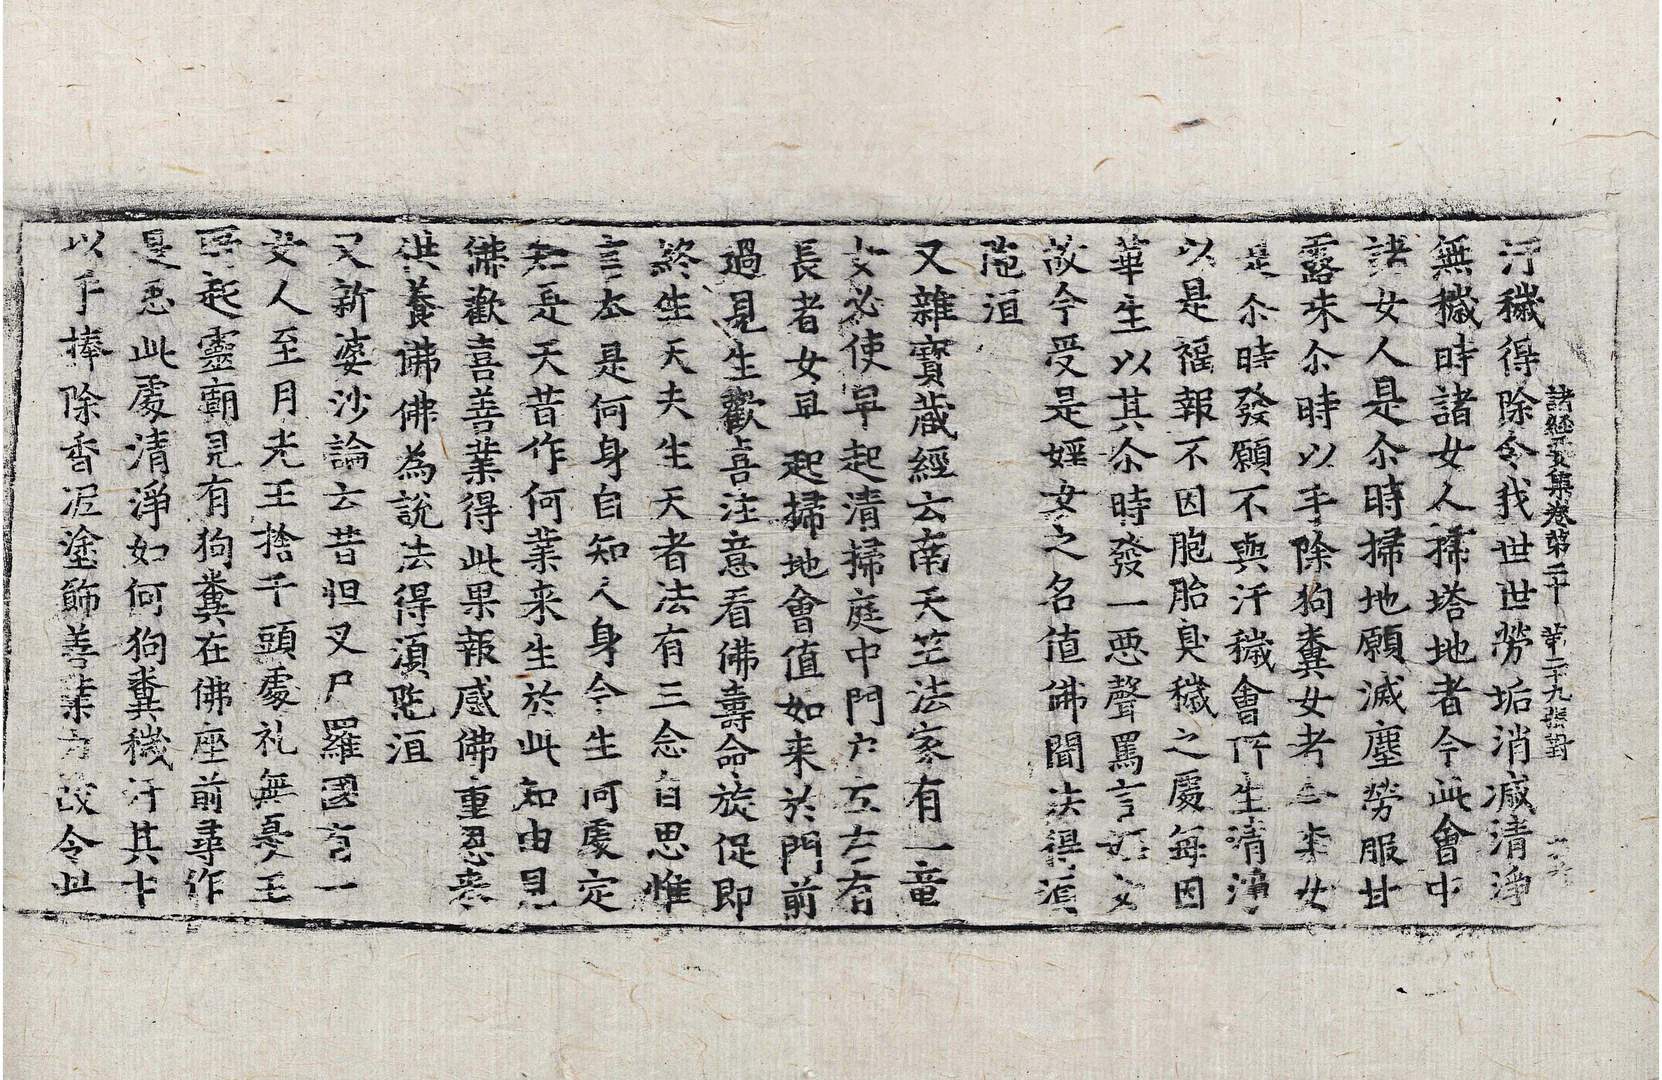 諸經要集卷第二十 第二十九張 對
汙穢得除令我世世勞垢消滅清淨
無穢時諸女人掃塔地者今此會中
諸女人是尒時掃地願滅塵勞服甘
露味尒時以手除狗糞女者今柰女
是尒時發願不與汙穢會所生清淨
以是福報不因胞胎臭穢之處每因
華生以其尒時發一惡聲罵言婬女
故今受是婬女之名值佛聞法得湏
陁洹
又雜寶藏經云南天竺法家有一童
女必使早起清掃庭中門戶左右有
長者女早起掃地會值如来於門前
過見生歡喜注意看佛壽命旋促即
終生天夫生天者法有三念自思惟
言本是何身自知人身今生何處定
知是天昔作何業来生於此知由見
佛歡喜善業得此果報感佛重恩来
供養佛佛為說法得湏陁洹
又新婆沙論云昔怛叉尸羅國有一
女人至月光王捨千頭處礼無憂王
所起靈廟見有狗糞在佛座前尋作
是思此處清淨如何狗糞穢汙其中
以手捧除香泥塗飾善業力故令此